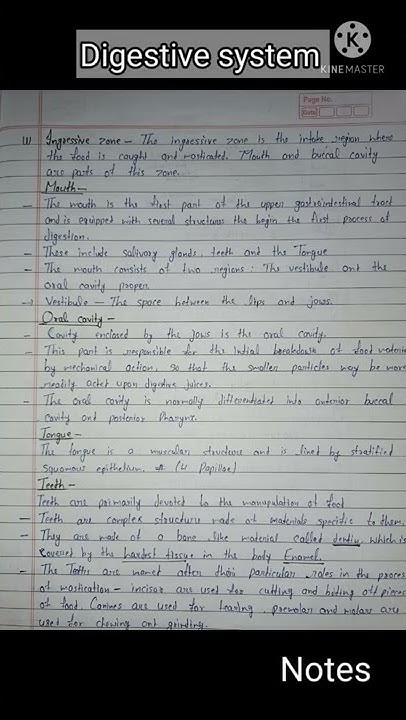 Digestive system
KINEMASTER
Page No.
Date
(1) Ingressive zone - The ingressive zone is the intake region where
the food is caught and masticated. Mouth and buccal cavity
are parts of this zone.
Mouth -
- The mouth is the first part of the upper gastrointestinal tract
and is equipped with several structures the begin the first process of
digestion.
- These include salivary glands, teeth and the Tongue
- The mouth consists of two regions: The vestibule ont the
oral cavity proper.
→ Vestibule - The space between the lips and jows.
Oral cavity -
- Cavity enclosed by the jows is the oral cavity.
- This part is responsible for the initial breakdown of food
by mechanical action, so that the smaller particles may be more
readily actet upon digestive juices.
- The oral cavity is normally differentiated into anterior buccal
cavity ont posterior Pharynx.
Tongue -
The tongue is a muscular structure and is lined by stratified
squamous epithelium. (4 Papillae)
Teeth -
Teeth are primarily devoted to the manupulation of food
- Teeth are complex structure made of materials specific to them.
- They are made of a bone like material called dentin, which is
covered by the hardest tissue in the body Enamel.
- The Teeths are namet after their particular roles in the proces
of mastication - incisor are used for cutting and biding off pieces
of food. Canines are used for tearing, premolar and molars are
used for chewing ont grinding.
Notes